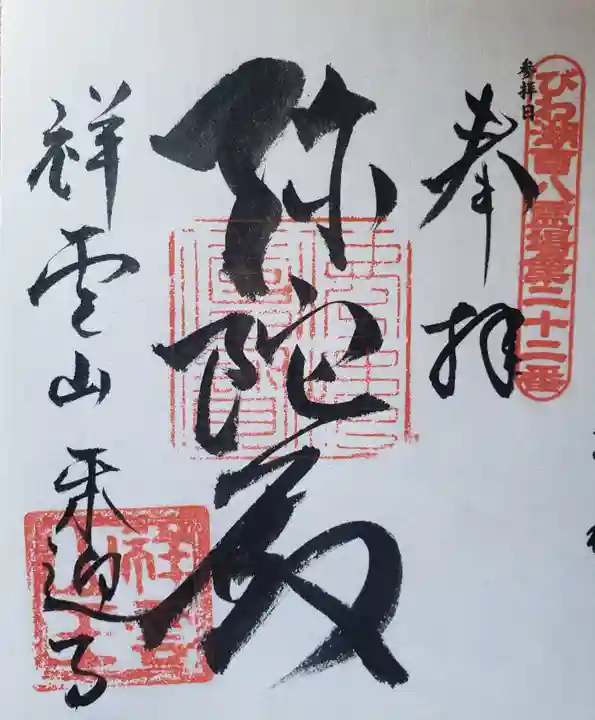 びわ湖百八霊場第二十二番
参拝日
奉拝
弥陀殿
祥雲山来迎寺